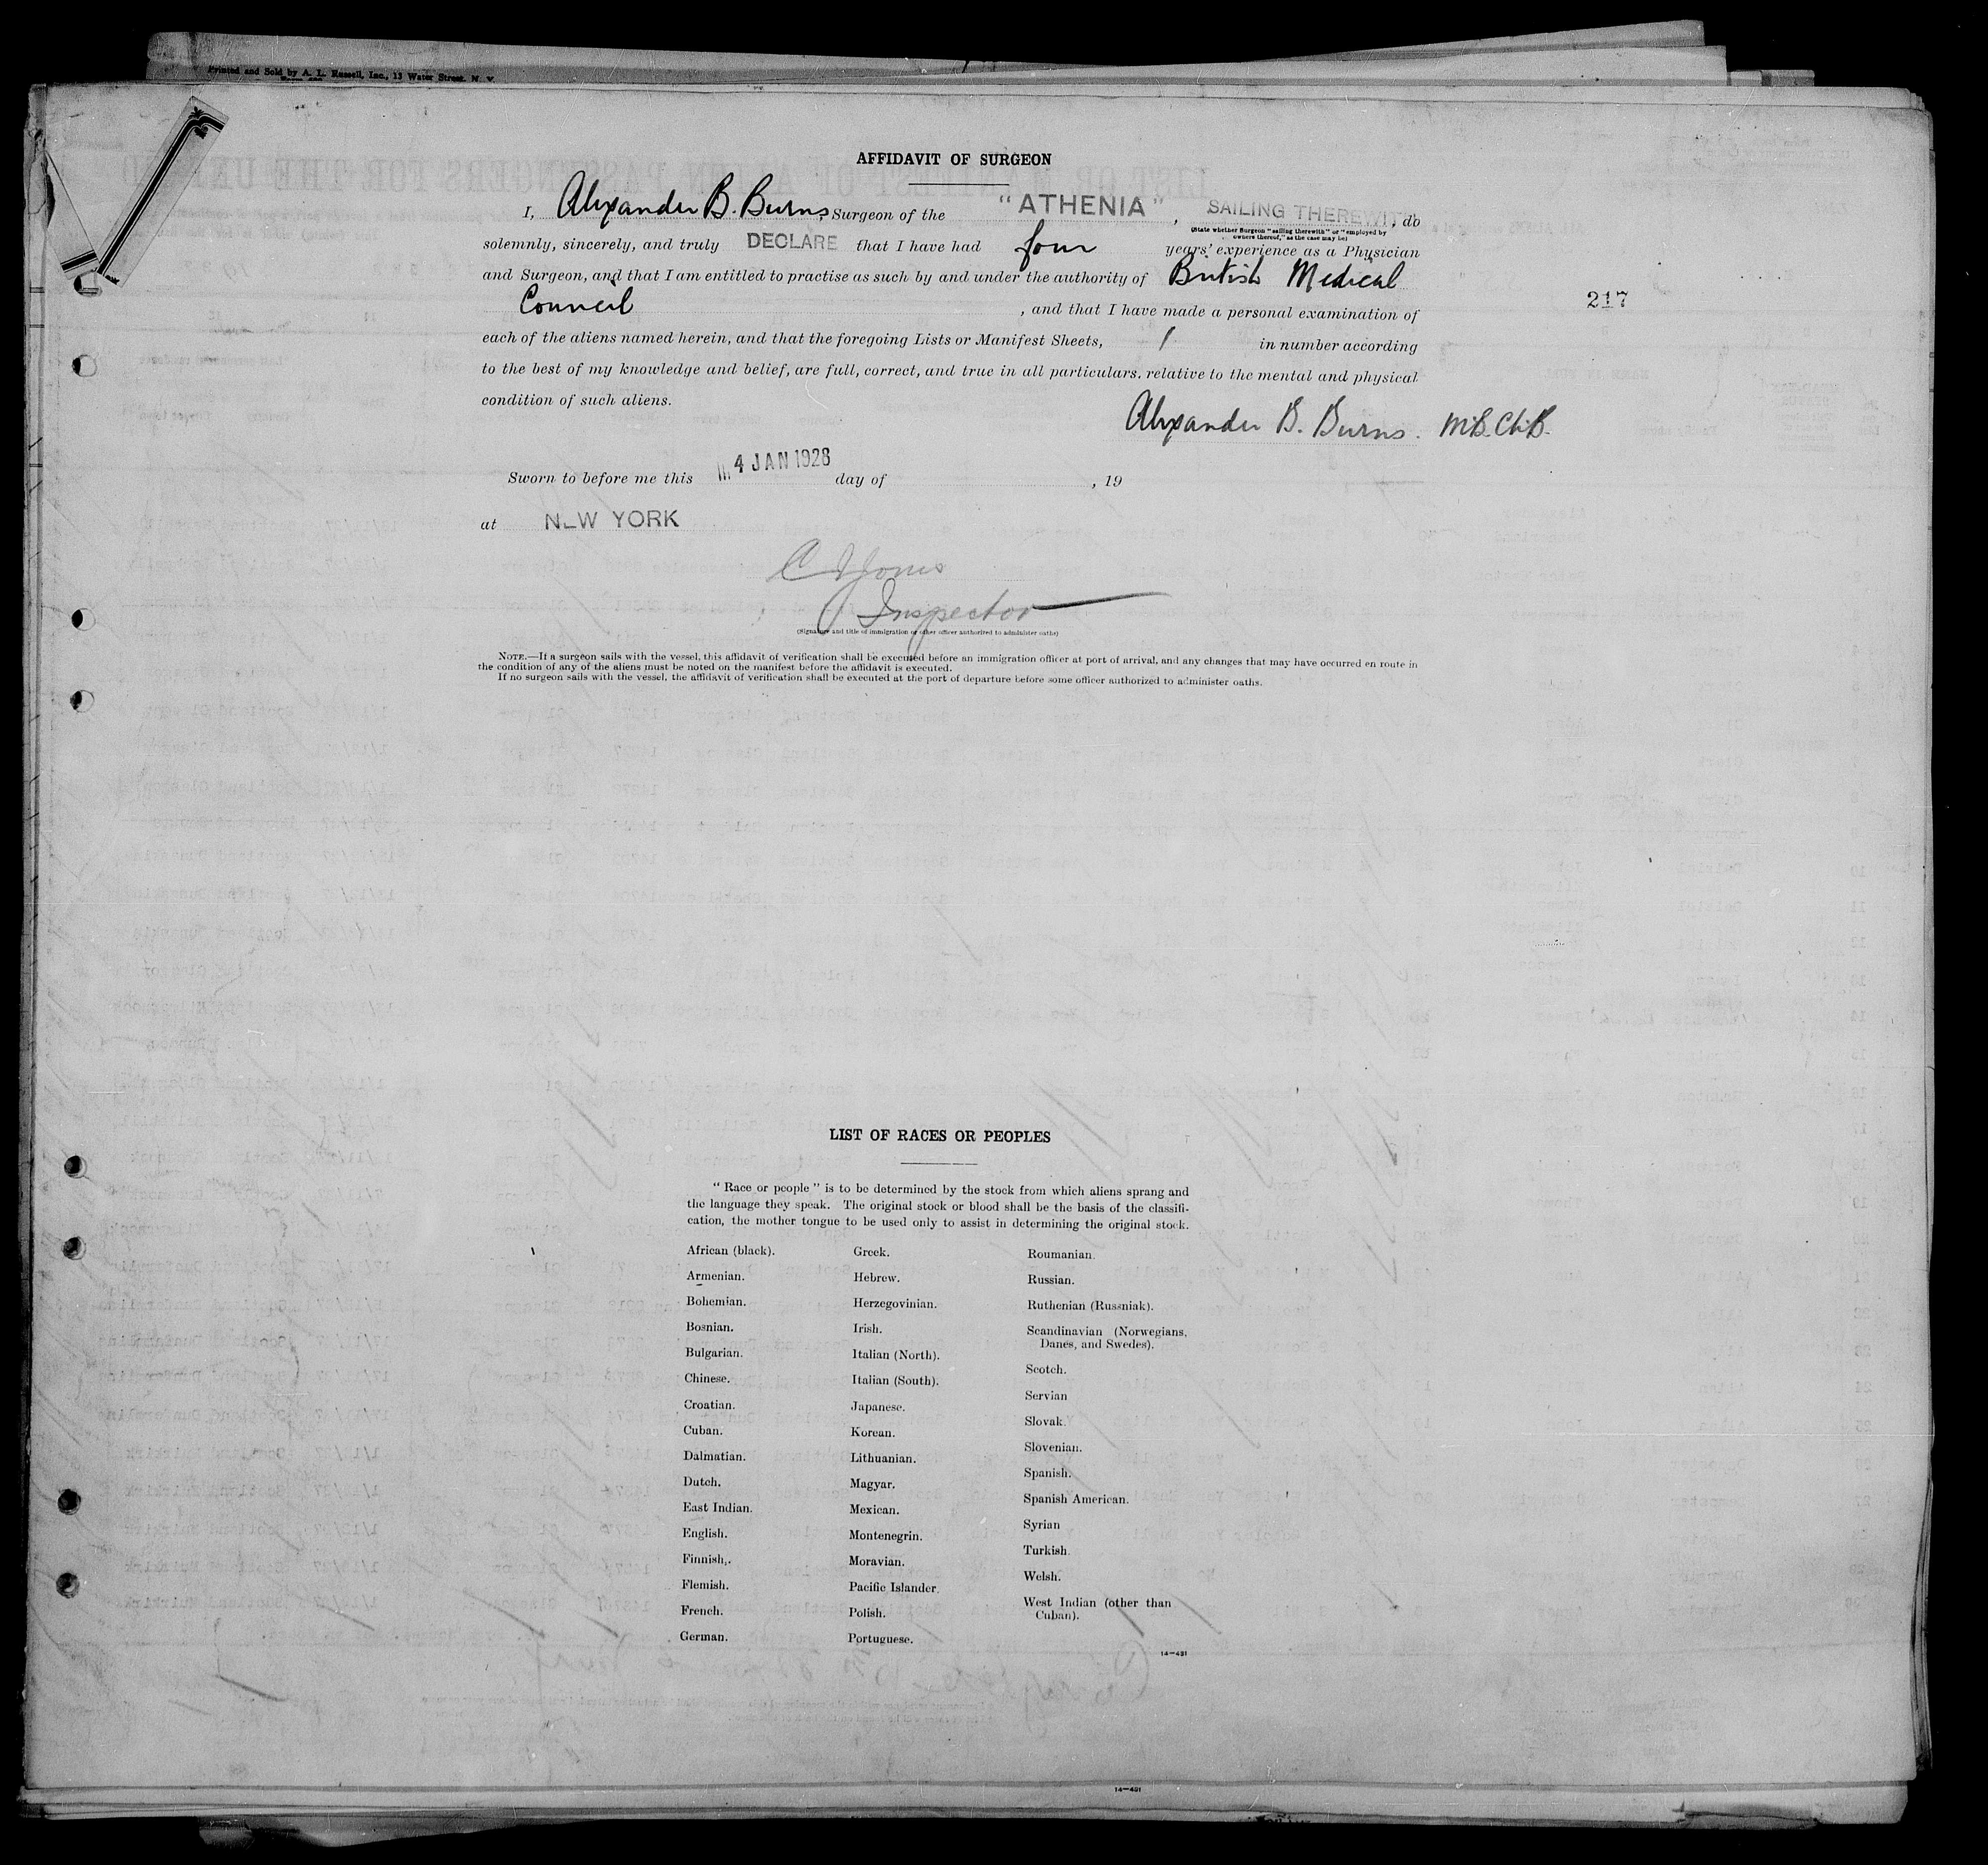 Printed and Sold by A. L. Russell, Inc., 13 Water Street, N. Y.
AFFIDAVIT OF SURGEON
I, Alexander B. Burns, Surgeon of the "ATHENIA", SAILING THEREWITH, do
(State whether Surgeon "sailing therewith" or "employed by
owners thereof," as the case may be)
solemnly, sincerely, and truly DECLARE that I have had four years' experience as a Physician
and Surgeon, and that I am entitled to practise as such by and under the authority of British Medical
Council, and that I have made a personal examination of
217
each of the aliens named herein, and that the foregoing Lists or Manifest Sheets, 1 in number according
to the best of my knowledge and belief, are full, correct, and true in all particulars, relative to the mental and physical
condition of such aliens.
Alexander B. Burns. M.B. Ch.B.
Sworn to before me this 4 JAN 1928 day of , 19
at NEW YORK
Inspector
(Signature and title of immigration or other officer authorized to administer oaths)
NOTE.—If a surgeon sails with the vessel, this affidavit of verification shall be executed before an immigration officer at port of arrival, and any changes that may have occurred en route in
the condition of any of the aliens must be noted on the manifest before the affidavit is executed.
If no surgeon sails with the vessel, the affidavit of verification shall be executed at the port of departure before some officer authorized to administer oaths.
LIST OF RACES OR PEOPLES
"Race or people" is to be determined by the stock from which aliens sprang and
the language they speak. The original stock or blood shall be the basis of the classifi-
cation, the mother tongue to be used only to assist in determining the original stock.
African (black).
Armenian.
Bohemian.
Bosnian.
Bulgarian.
Chinese.
Croatian.
Cuban.
Dalmatian.
Dutch.
East Indian.
English.
Finnish.
Flemish.
French.
German.
Greek.
Hebrew.
Herzegovinian.
Irish.
Italian (North).
Italian (South).
Japanese.
Korean.
Lithuanian.
Magyar.
Mexican.
Montenegrin.
Moravian.
Pacific Islander.
Polish.
Portuguese.
Roumanian.
Russian.
Ruthenian (Russniak).
Scandinavian (Norwegians,
Danes, and Swedes).
Scotch.
Servian
Slovak.
Slovenian.
Spanish.
Spanish American.
Syrian
Turkish.
Welsh.
West Indian (other than
Cuban).
14—431
14—431